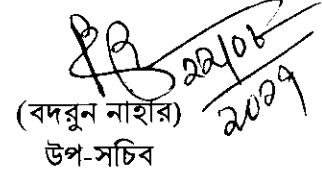 ২২/০৮
২০২৭
(বদরুন নাহার)
উপ-সচিব